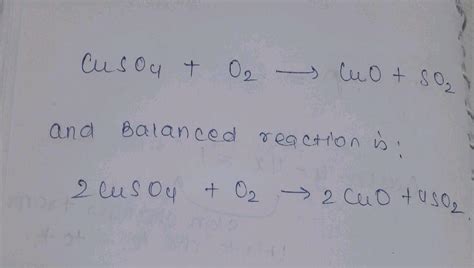 CuSO4 + O2 → CuO + SO2
and Balanced reaction is:
2 CuSO4 + O2 → 2 CuO + 4SO2.